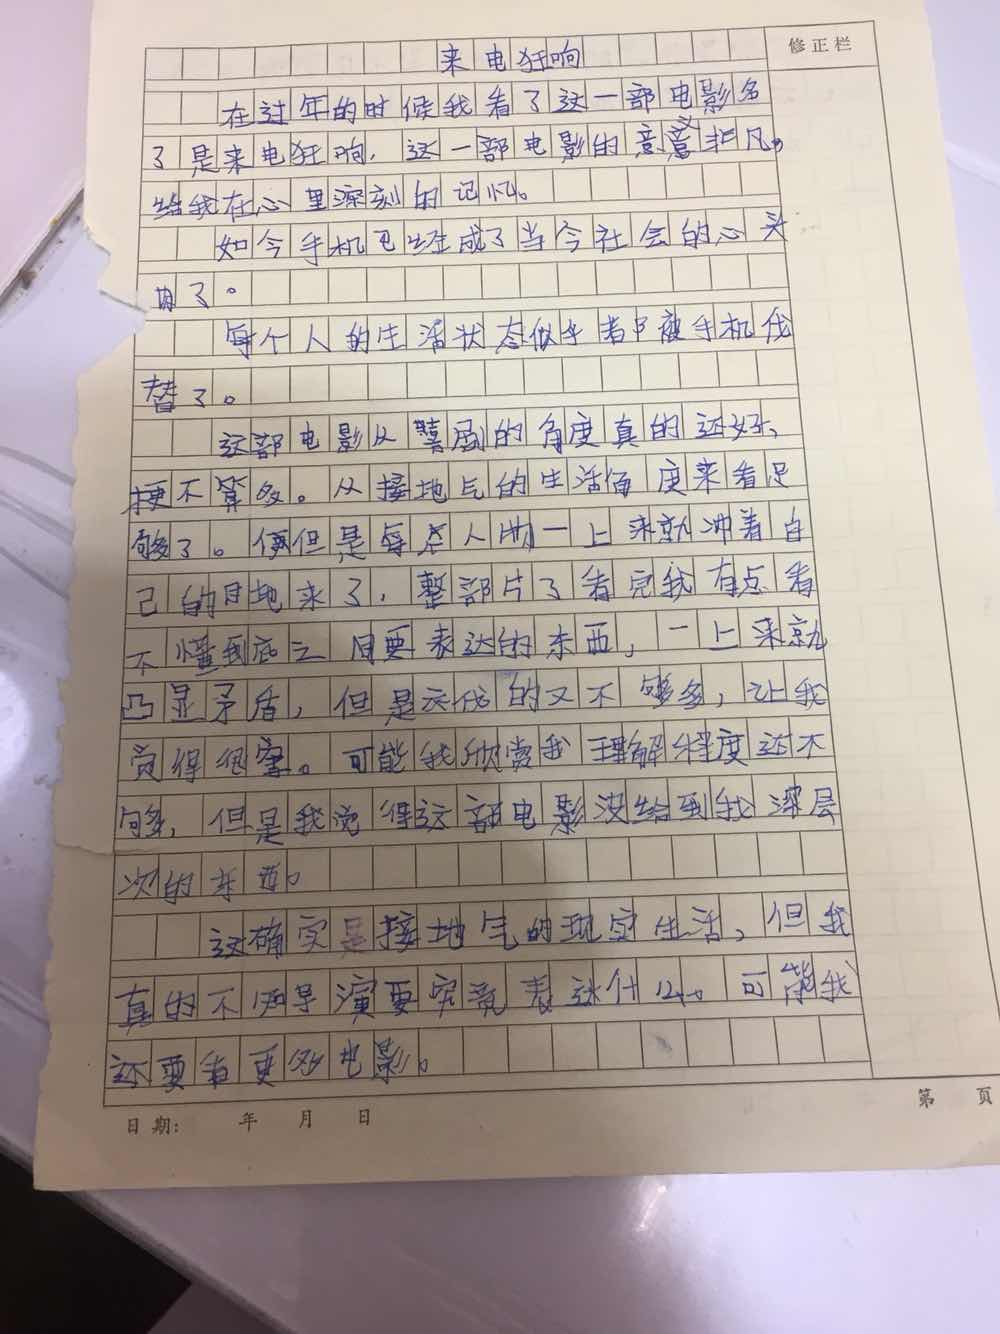 修正栏
来电狂响
在过年的时候我看了这一部电影名
了是来电狂响，这一部电影的意义非凡。
给我在心里深刻的记忆。
如今手机已经成了当今社会的心头
了。
每个人的生活状态似乎都被手机代
替了。
这部电影从喜剧的角度真的还好、
梗不算多。从接地气的生活角度来看足
够了。但是每个人物一上来就冲着自
己的目地来了，整部片了看完我有点看
不懂到底之间要表达的东西，一上来就
凸显矛盾，但是交代的又不够多，让我
觉得很窄。可能我欣赏我理解程度还不
够，但是我觉得这部电影没给到我深层
次的东西。
这确实是接地气的现实生活，但我
真的不懂导演要究竟表达什么。可能我
还要看更多电影。
日期： 年 月 日
第 页